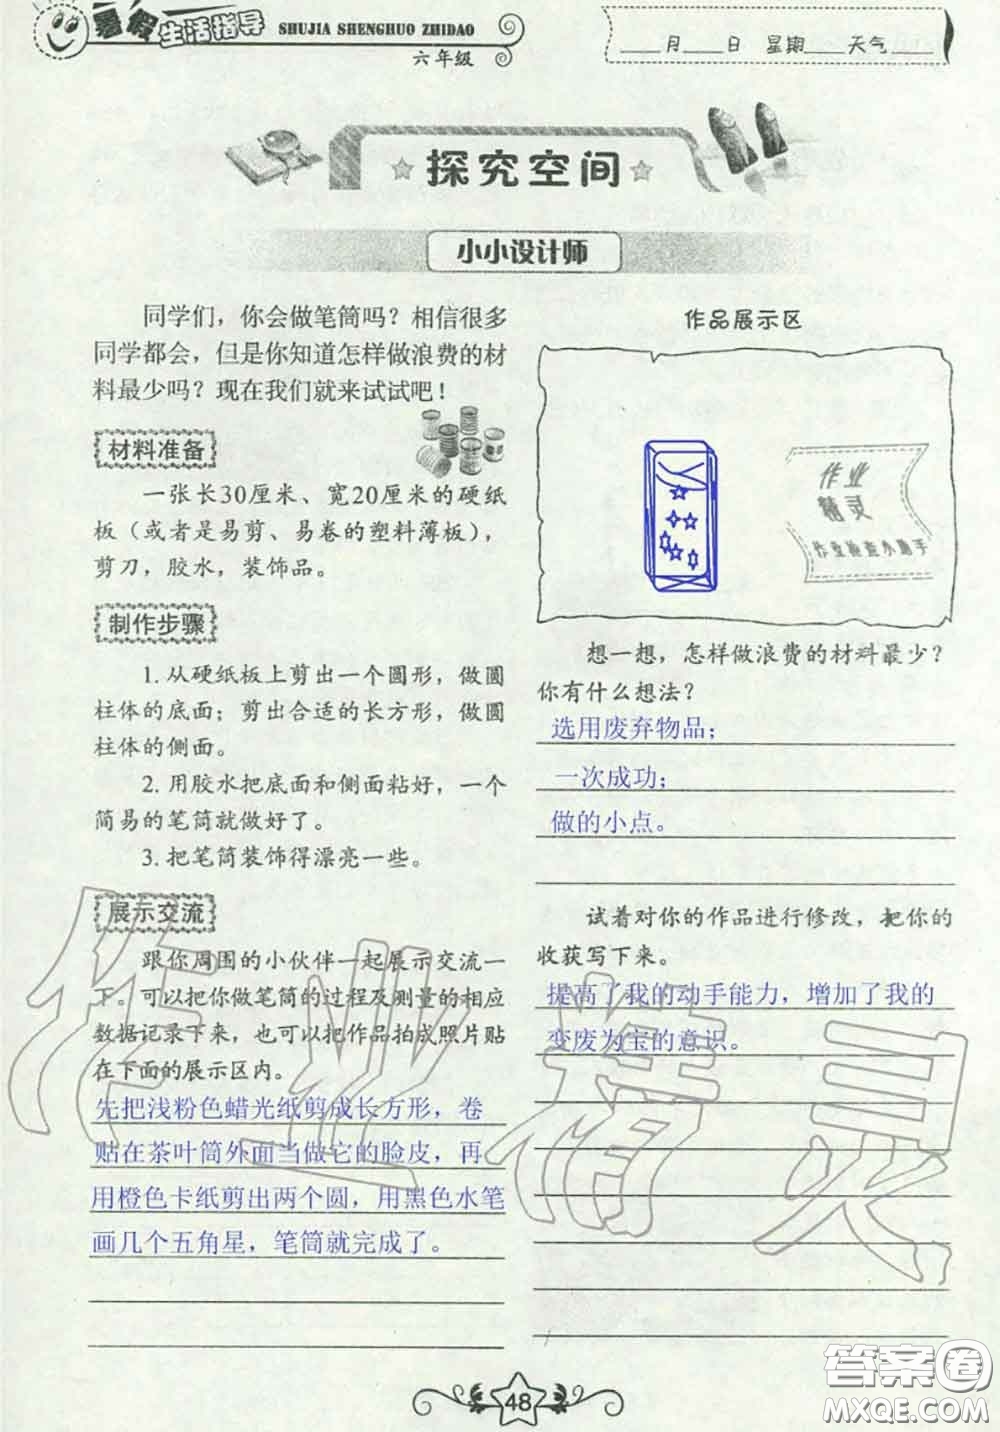 暑假生活指导 SHUJIA SHENGHUO ZHIDAO
六年级
____月____日 星期____天气____
探究空间
小小设计师
同学们，你会做笔筒吗？相信很多
同学都会，但是你知道怎样做浪费的材
料最少吗？现在我们就来试试吧！
材料准备
一张长30厘米、宽20厘米的硬纸
板（或者是易剪、易卷的塑料薄板），
剪刀，胶水，装饰品。
制作步骤
1. 从硬纸板上剪出一个圆形，做圆
柱体的底面；剪出合适的长方形，做圆
柱体的侧面。
2. 用胶水把底面和侧面粘好，一个
简易的笔筒就做好了。
3. 把笔筒装饰得漂亮一些。
展示交流
跟你周围的小伙伴一起展示交流一
下。可以把你做笔筒的过程及测量的相应
数据记录下来，也可以把作品拍成照片贴
在下面的展示区内。
先把浅粉色蜡光纸剪成长方形，卷
贴在茶叶筒外面当做它的脸皮，再
用橙色卡纸剪出两个圆，用黑色水笔
画几个五角星，笔筒就完成了。
作品展示区
作业
精灵
作业检查小助手
想一想，怎样做浪费的材料最少？
你有什么想法？
选用废弃物品；
一次成功；
做的小点。
试着对你的作品进行修改，把你的
收获写下来。
提高了我的动手能力，增加了我的
变废为宝的意识。
作业精灵
48
答案圈
MXQE.COM